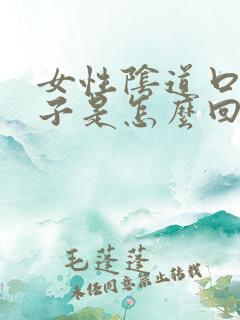 女性陰道口
子是怎麼回
毛蓬蓬
未经同意禁止转载